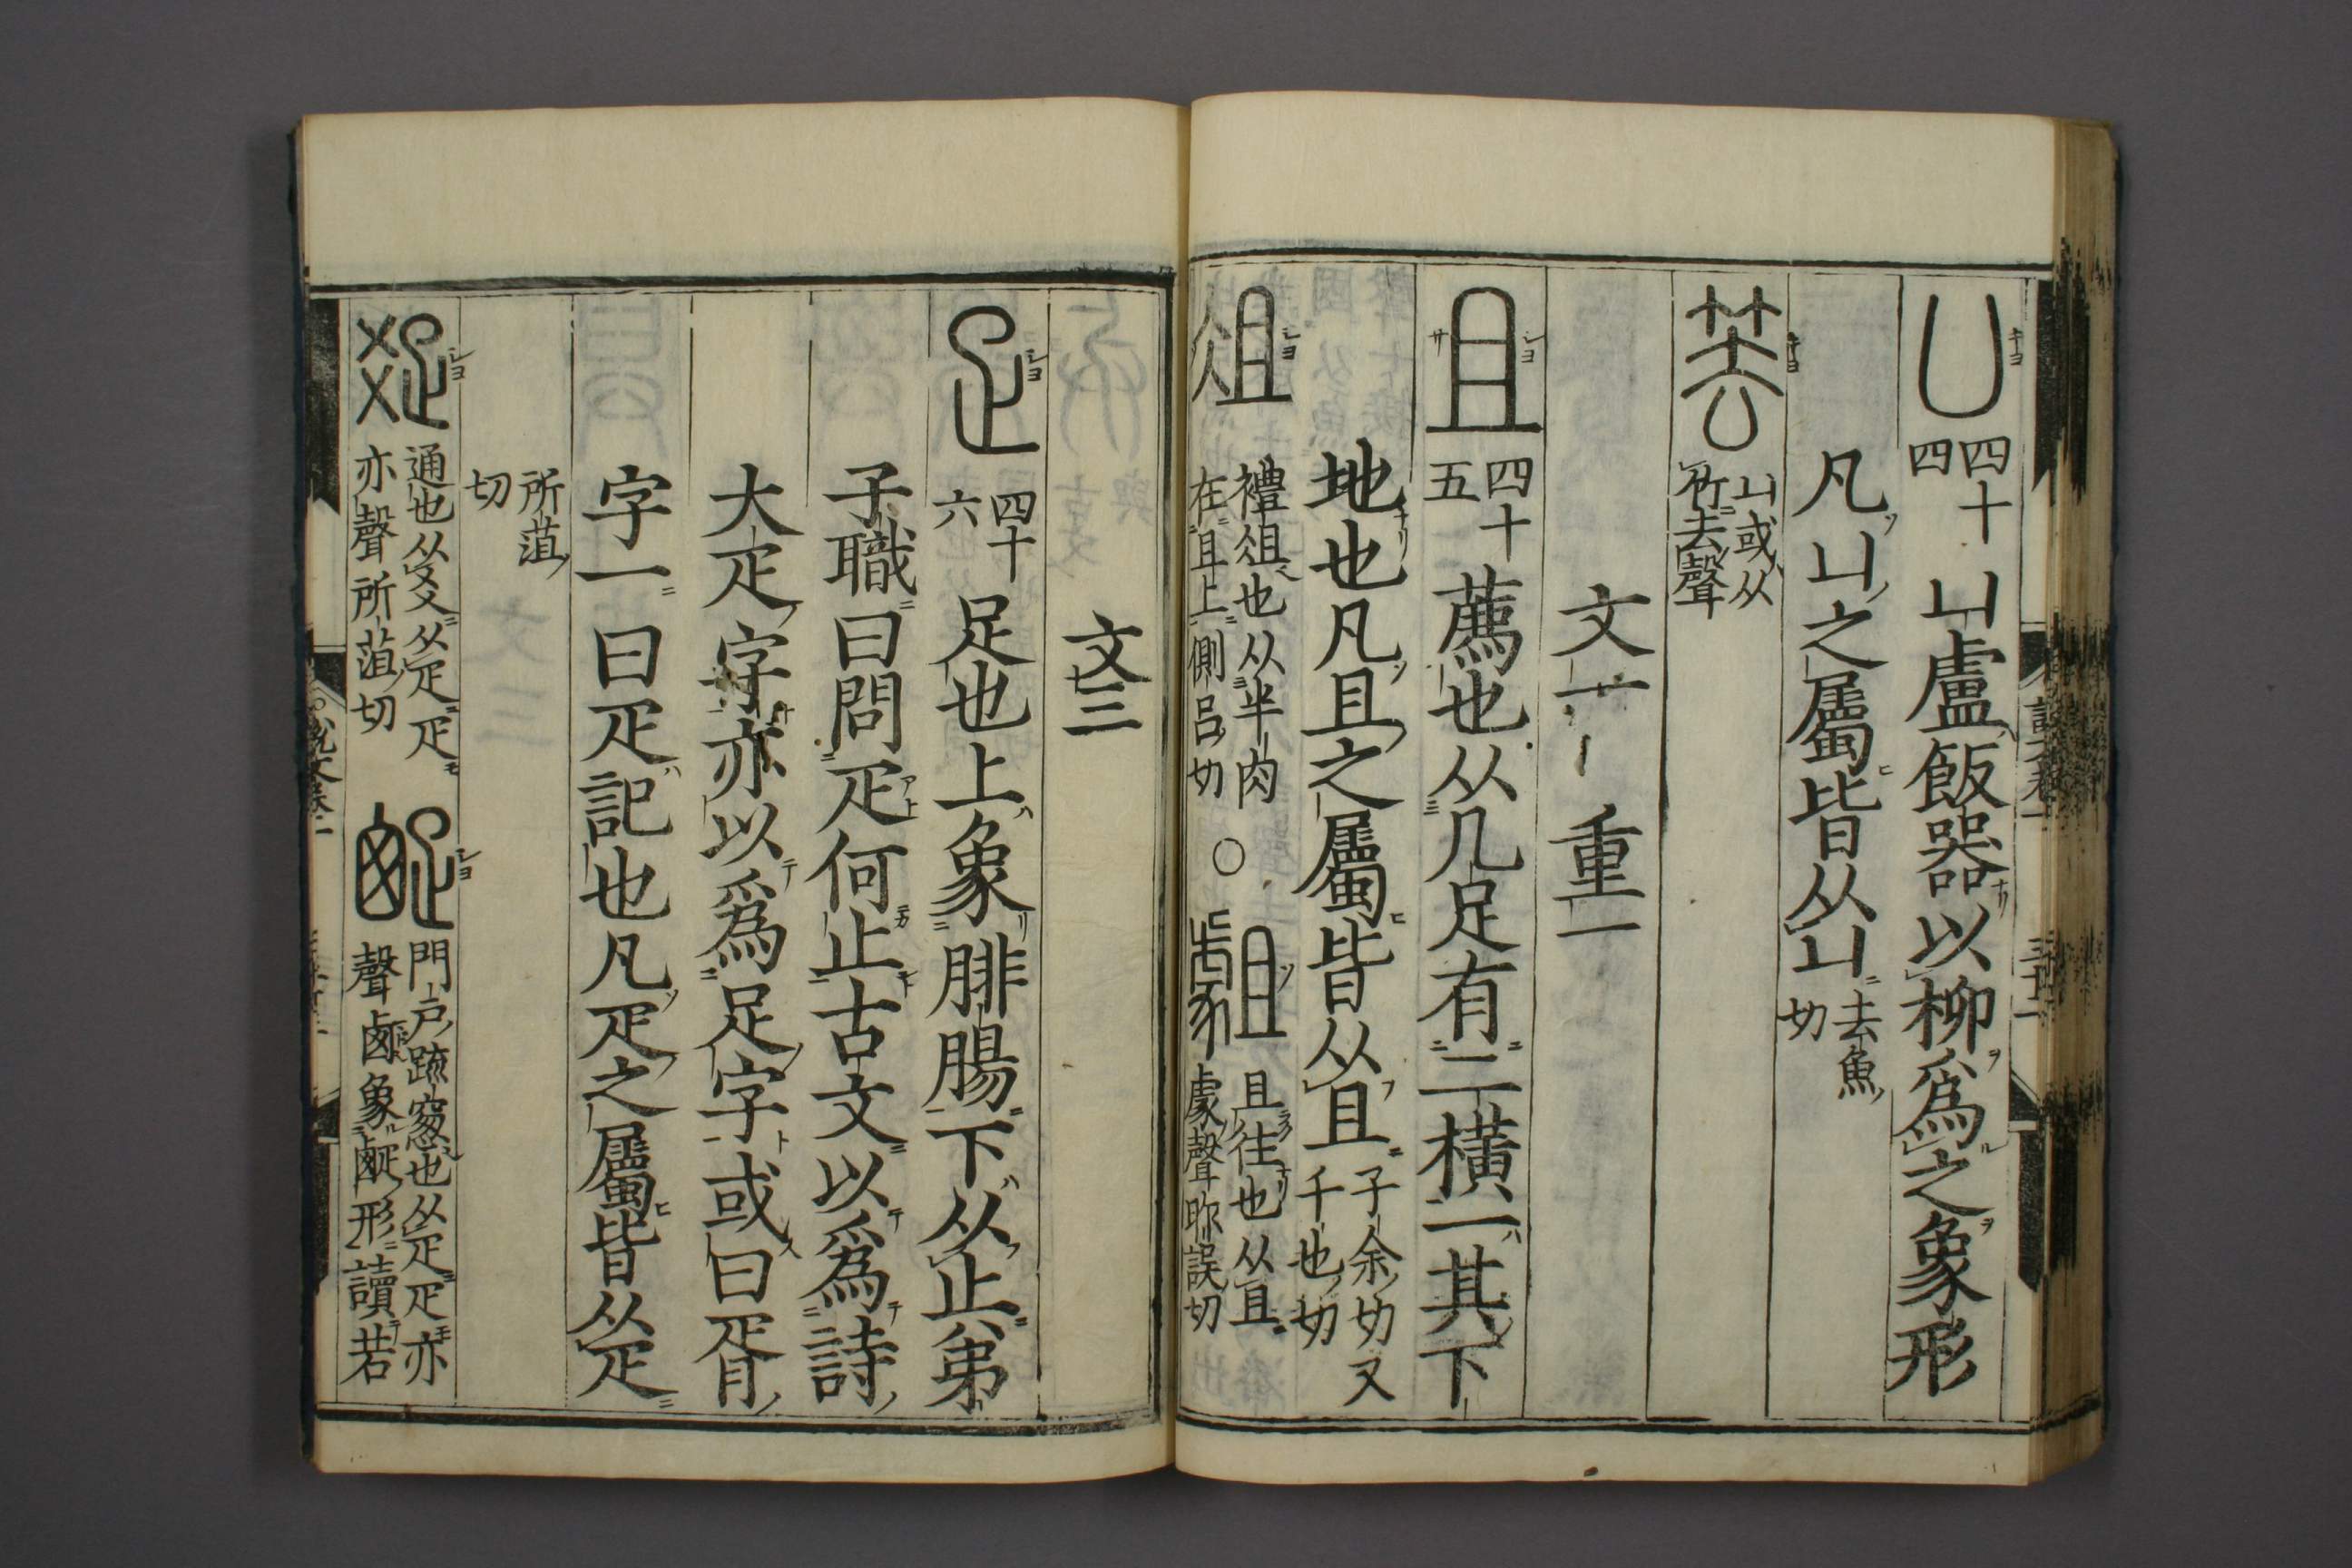 凵 四十四 凵盧飯器以柳爲之象形
凡凵之屬皆从凵 去魚切
𥬔 凵或从竹去聲
文一 重一
且 四十五 薦也从几足有二横一其下
地也凡且之屬皆从且 子余切又千也切
俎 禮俎也从半肉在且上側呂切 〇 䖕 且往也从且䖒聲昨誤切
文三
疋 四十六 足也上象腓腸下从止弟
子職曰問疋何止古文以爲詩
大疋字亦以爲足字或曰胥
字一曰疋記也凡疋之屬皆从疋
所菹切
𤕟 通也从爻从疋疋亦聲所菹切 𤴙 門戶疏窓也从疋疋亦聲囪象𤴙形讀若